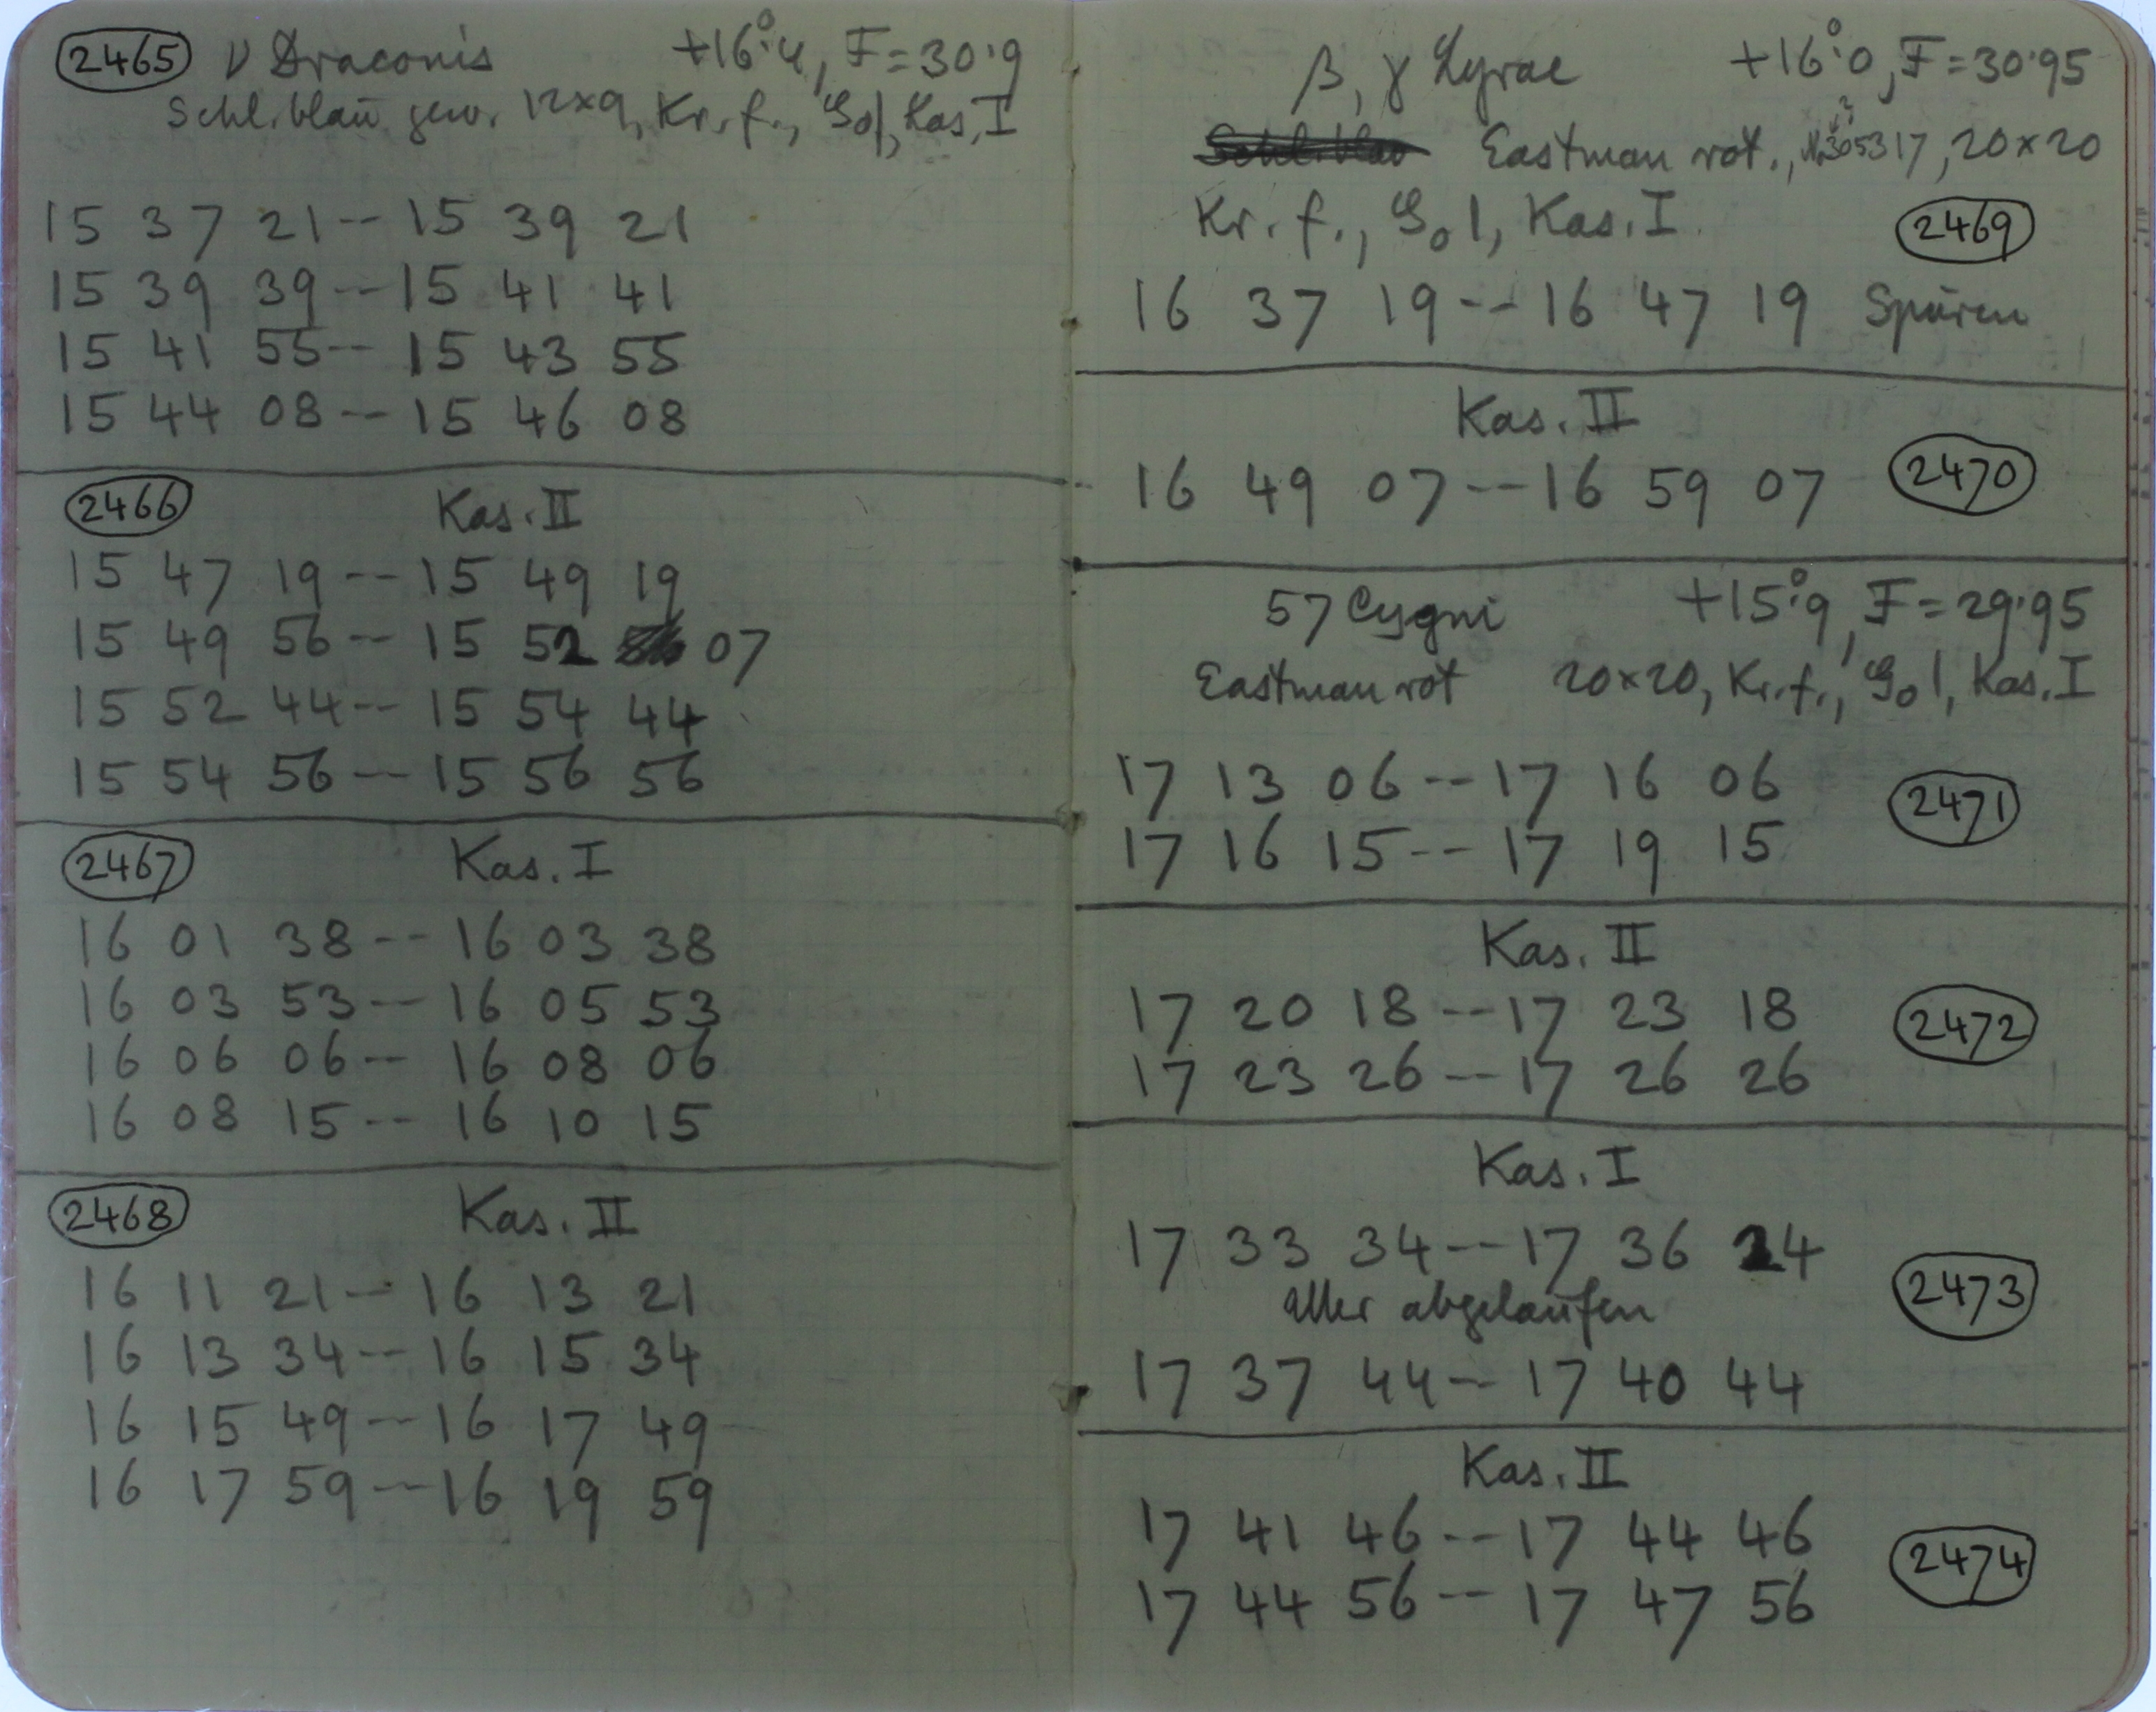 2465 ν Draconis +16°.4, F=30.9
Schl. blau gew. 12×9, Kr. f., Kas. I
15 37 21 -- 15 39 21
15 39 39 -- 15 41 41
15 41 55 -- 15 43 55
15 44 08 -- 15 46 08
2466 Kas. II
15 47 19 -- 15 49 19
15 49 56 -- 15 52 07
15 52 44 -- 15 54 44
15 54 56 -- 15 56 56
2467 Kas. I
16 01 38 -- 16 03 38
16 03 53 -- 16 05 53
16 06 06 -- 16 08 06
16 08 15 -- 16 10 15
2468 Kas. II
16 11 21 -- 16 13 21
16 13 34 -- 16 15 34
16 15 49 -- 16 17 49
16 17 59 -- 16 19 59
β, γ Lyrae +16°.0, F=30.95
Eastman rot., 20×20
Kr. f., Kas. I. 2469
16 37 19 -- 16 47 19 Spuren
Kas. II
16 49 07 -- 16 59 07 2470
57 Cygni +15°.9, F=29.95
Eastman rot 20×20, Kr. f., Kas. I
17 13 06 -- 17 16 06
2471
17 16 15 -- 17 19 15
Kas. II
17 20 18 -- 17 23 18 2472
17 23 26 -- 17 26 26
Kas. I
17 33 34 -- 17 36 24
2473
abgelaufen
17 37 44 -- 17 40 44
Kas. II
17 41 46 -- 17 44 46
2474
17 44 56 -- 17 47 56